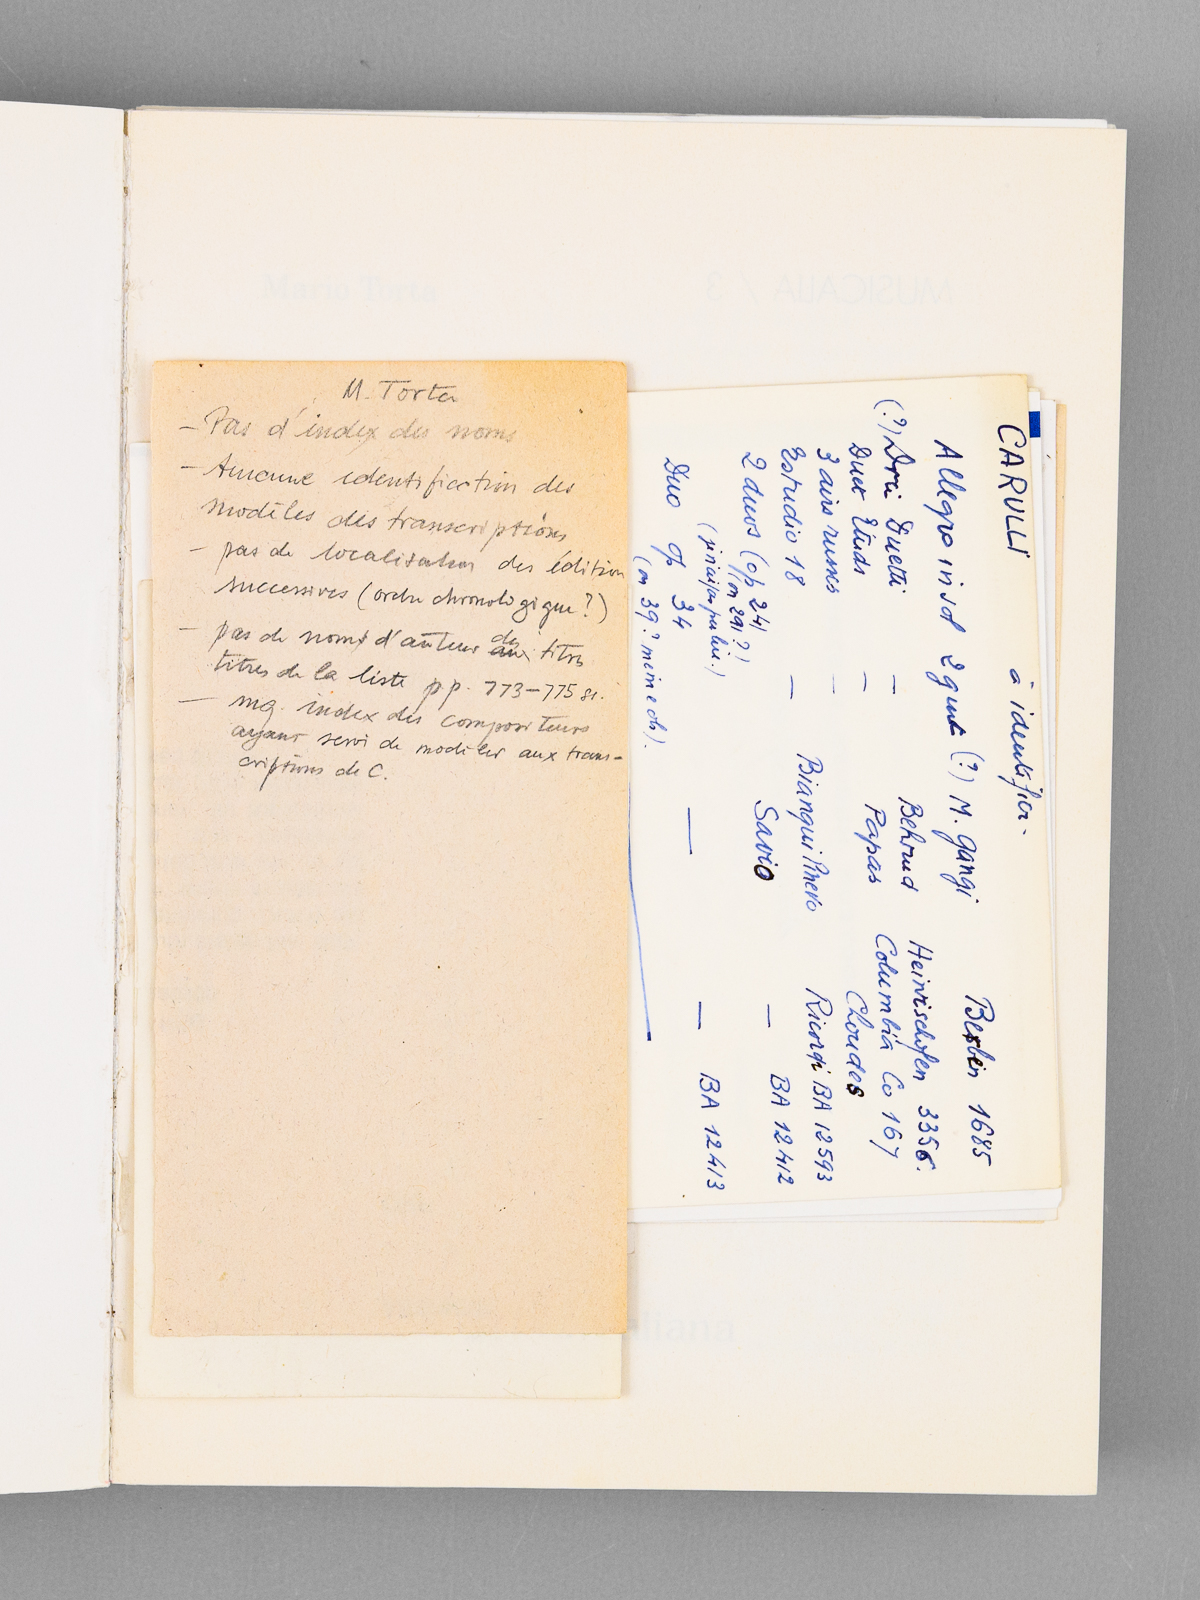 M. Torta
- Pas d'index des noms
- Aucune identification des
modèles des transcriptions
- pas de localisation des édition
successives (ordre chronologique?)
- pas de noms d'auteur des titres
titres de la liste pp. 773-775 
- mq. index des compositeurs
ayant servi de modèles aux trans-
criptions de C.
CARULLI à identifier.
Allegro in sol 2 guit (?) M. Gangi Berben 1685
(?) Drei Duetti — Behrend Heinrischofen 3356.
Duet Etuds — Papas Columbia Co 167
3 airs russes — Choudes
Estudio 18 — Bianqui Pinero Ricordi BA 12593
2 duos (op 241 Savio — BA 12412
(on 291?)
Duo op 34 — — BA 12413
(on 39? même ch).
Mario Torta
MUSICALIA / 3
liana